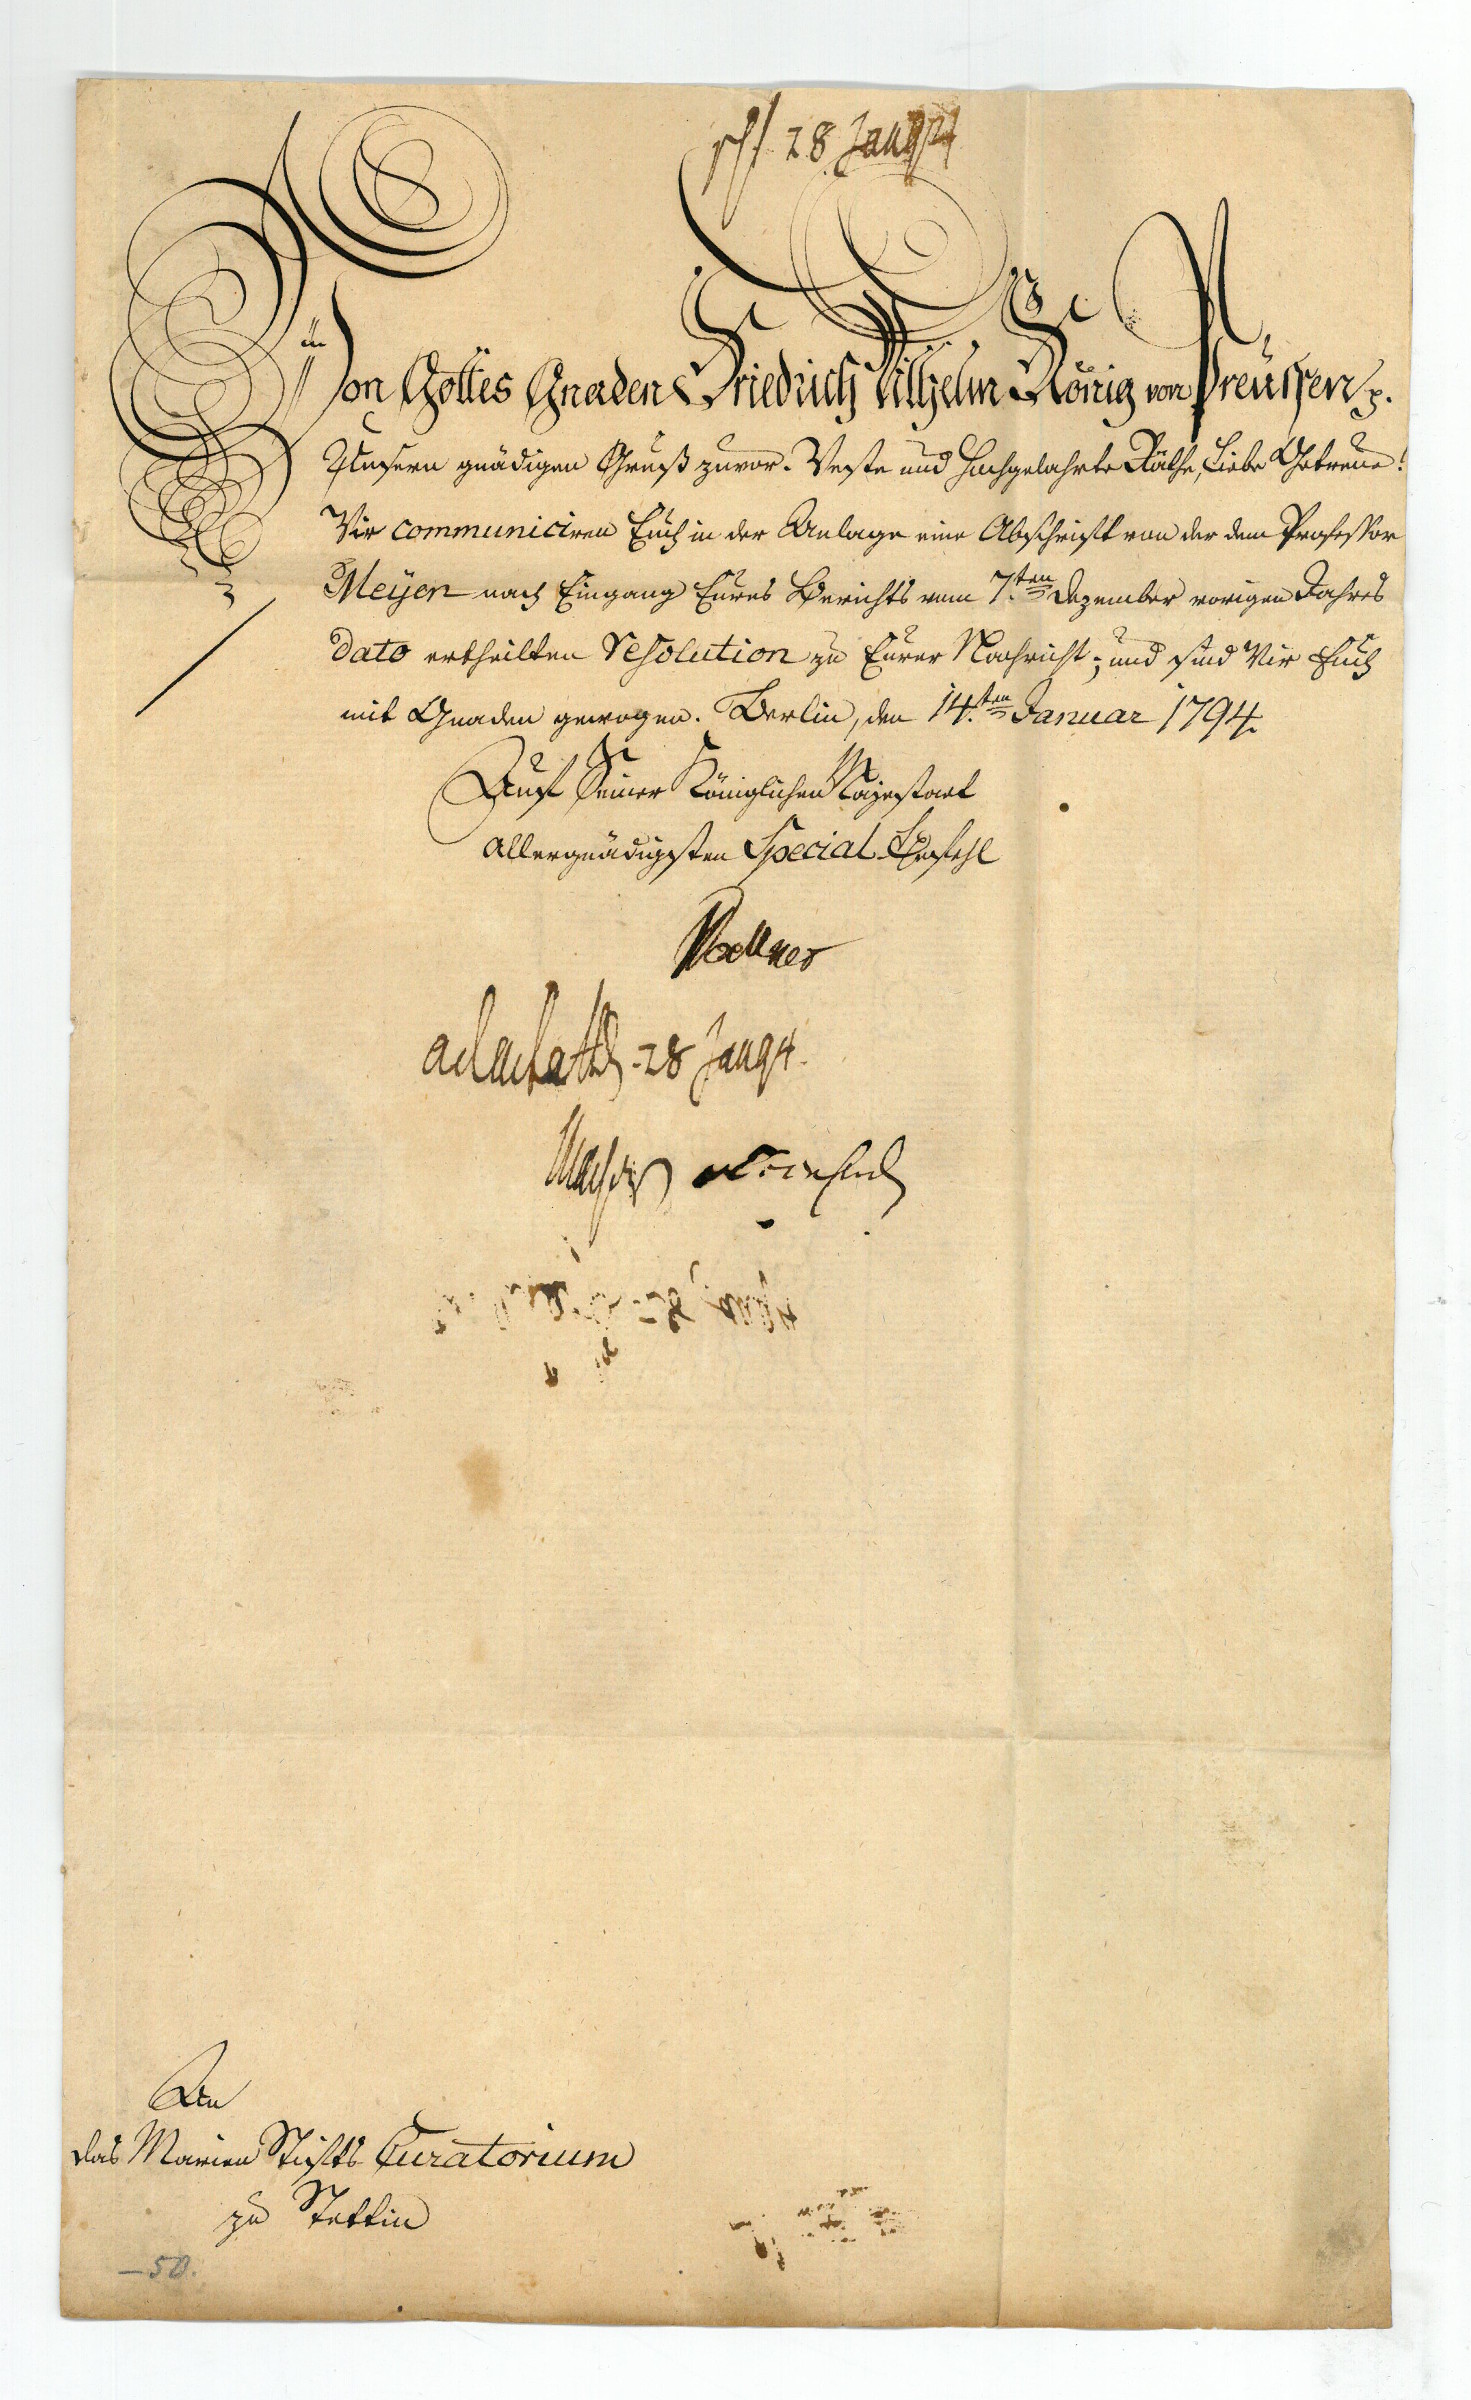 28 Jan 94
Von Gottes Gnaden Friedrich Wilhelm König von Preüssen p.
Unsern gnädigen Gruß zuvor. Veste und Hochgelahrte Räthe, Liebe Getreue!
Wir communiciren Euch in der Anlage eine Abschrift von der dem Professor
Meÿen nach Eingang Eures Berichts vom 7.ten Dezember vorigen Jahres
dato ertheilten Resolution zu Eurer Nachricht; und sind Wir Euch
mit Gnaden gewogen. Berlin, den 14.ten Januar 1794.
Auf Seiner Königlichen Majestaet
allergnädigsten Special-Befehl
Woellner
28 Jan 94.
An
das Marien Stifts Curatorium
zu Stettin
—50.